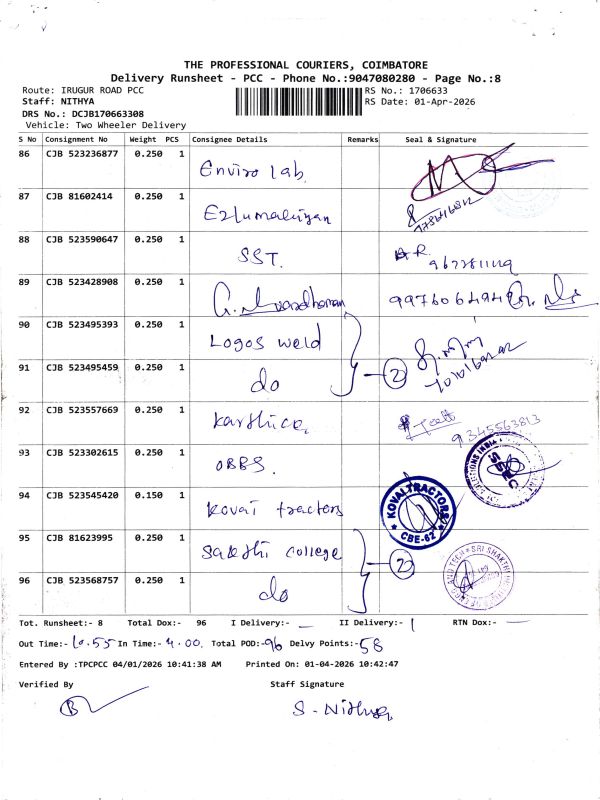 THE PROFESSIONAL COURIERS, COIMBATORE
Delivery Runsheet - PCC - Phone No.:9047080280 - Page No.:8
Route: IRUGUR ROAD PCC RS No.: 1706633
Staff: NITHYA RS Date: 01-Apr-2026
DRS No.: DCJB170663308
Vehicle: Two Wheeler Delivery
S No Consignment No Weight PCS Consignee Details Remarks Seal & Signature
86 CJB 523236877 0.250 1 Enviro lab.
87 CJB 81602414 0.250 1 Ezlumaliyan
88 CJB 523590647 0.250 1 SST.
89 CJB 523428908 0.250 1
90 CJB 523495393 0.250 1 Logos weld
91 CJB 523495459 0.250 1 do 2
92 CJB 523557669 0.250 1 Karthica 9345563813
93 CJB 523302615 0.250 1 OBBS.
94 CJB 523545420 0.150 1 Kovai tractors KOVAI TRACTORS CBE-62
95 CJB 81623995 0.250 1 Sakthi college 2 SRI SHAKTHI
96 CJB 523568757 0.250 1 do
Tot. Runsheet:- 8 Total Dox:- 96 I Delivery:- _ II Delivery:- | RTN Dox:- _
Out Time:- 10.55 In Time:- 4.00. Total POD:- 96 Delvy Points:- 58
Entered By :TPCPCC 04/01/2026 10:41:38 AM Printed On: 01-04-2026 10:42:47
Verified By Staff Signature
S - Nithya